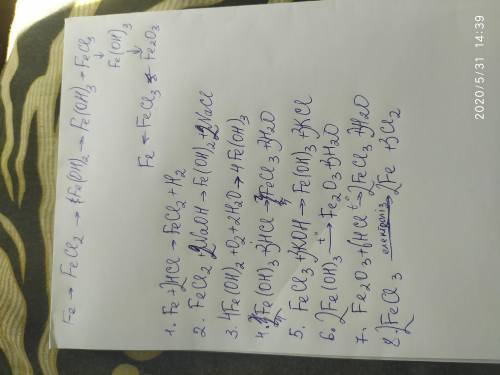 Fe → FeCl2 → Fe(OH)2 → Fe(OH)3 → FeCl3
↓
Fe(OH)3
↓
Fe ← FeCl3 ← Fe2O3
1. Fe+2HCl → FeCl2+H2
2. FeCl2+2NaOH → Fe(OH)2+2NaCl
3. 4Fe(OH)2+O2+2H2O → 4Fe(OH)3
4. Fe(OH)3+3HCl → FeCl3+3H2O
5. FeCl3+3KOH → Fe(OH)3+3KCl
6. 2Fe(OH)3 t→ Fe2O3+3H2O
7. Fe2O3+6HCl t°→ 2FeCl3+3H2O
8. 2FeCl3 електроліз→ 2Fe+3Cl2
2020/5/31 14:39